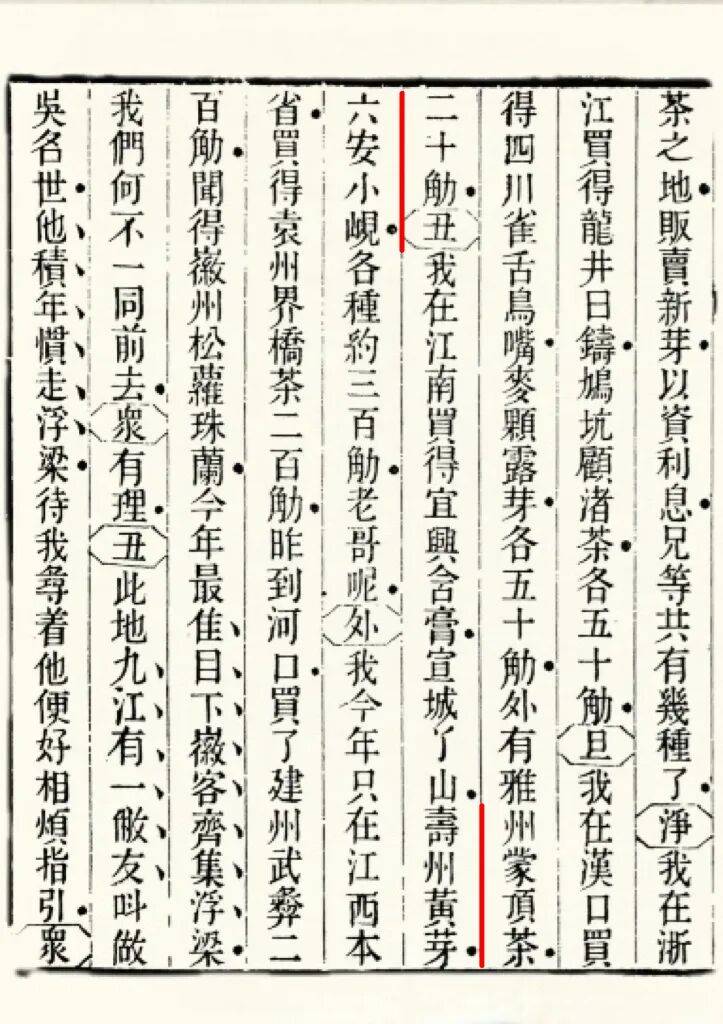 茶之地販賣新芽以資利息兄等共有幾種了淨我在浙
江買得龍井日鑄鳩坑顧渚茶各五十觔旦我在漢口買
得四川雀舌鳥嘴麥顆露芽各五十觔外有雅州蒙頂茶
二十觔丑我在江南買得宜興含膏宣城丫山壽州黃芽
六安小峴各種約三百觔老哥呢外我今年只在江西本
省買得袁州界橋茶二百觔昨到河口買了建州武彝二
百觔聞得徽州松蘿珠蘭今年最佳目下徽客齊集浮梁
我們何不一同前去衆有理丑此地九江有一敝友叫做
吳名世他積年慣走浮梁待我尋着他便好相煩指引衆